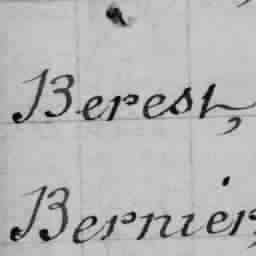 Berest,
Bernier,